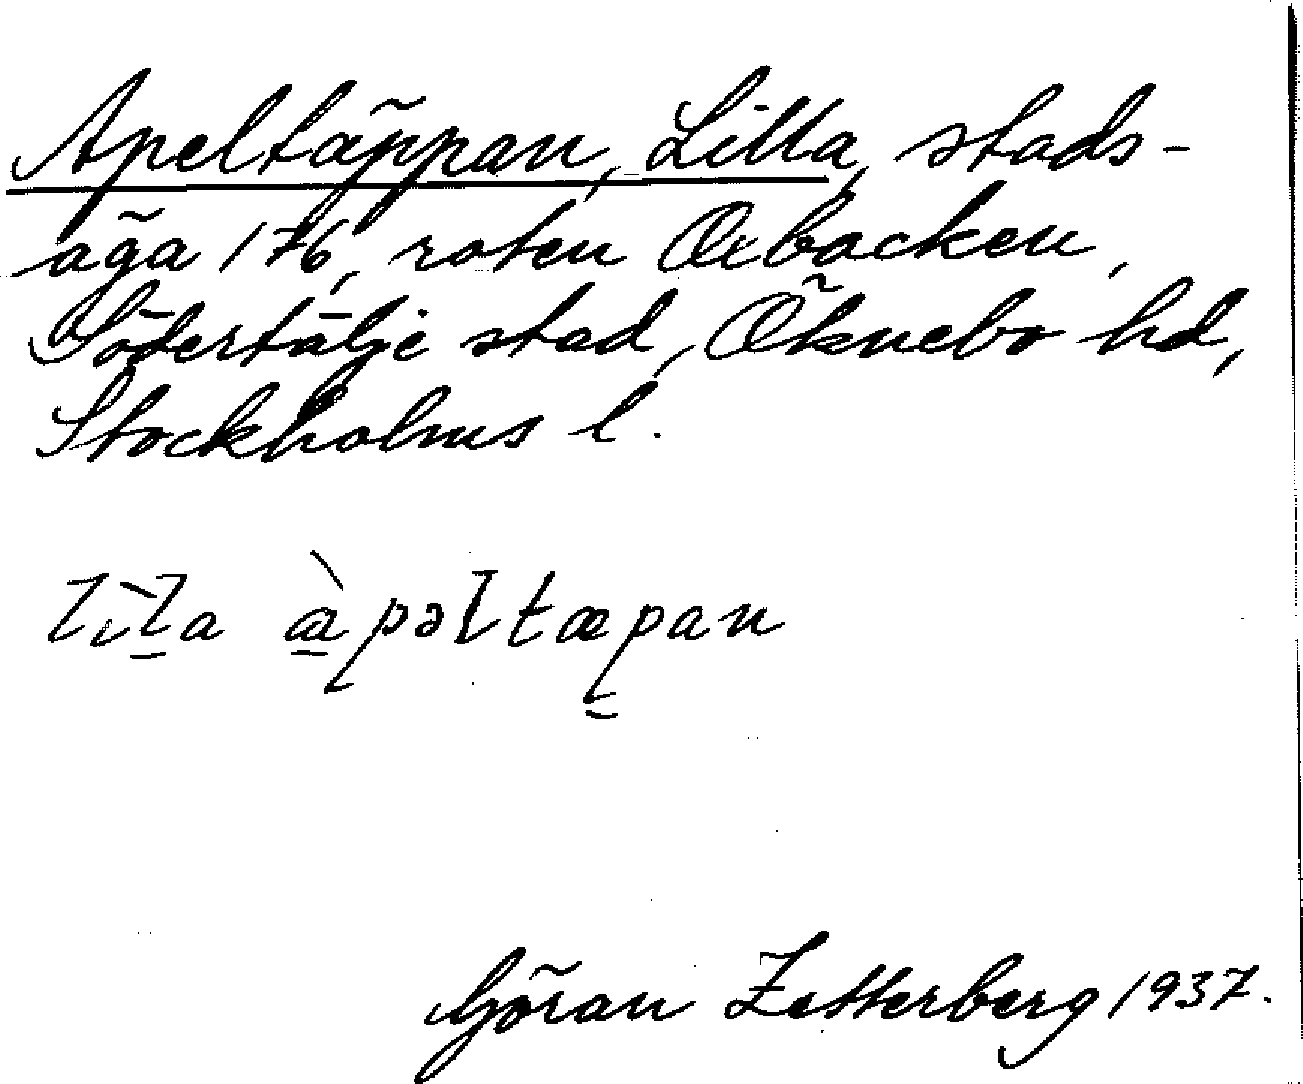 Apeltäppan, Lilla, stads-
äga 176, roten Oxbacken,
Södertälje stad, Öknebo hd,
Stockholms l.
Göran Zetterberg 1937.